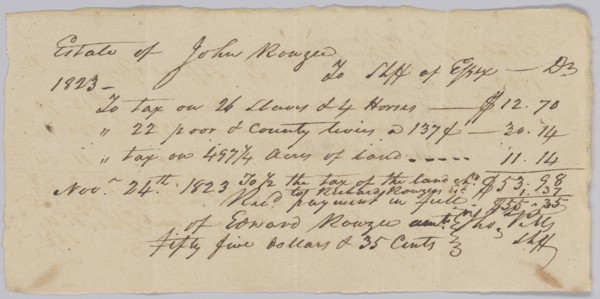 Estate of John Rouzee
To Shff of Essex — Dr
1823 —
To tax on 26 Slaves & 4 Horses — $12.70
" 22 poor & County levies a 137¢ — 30.14
" tax on 497¼ Acres of land ----- 11.14
$53.98
Novr. 24th. 1823 To ½ the tax of the land
to Richard Rouzee 1.37
Recd. payment in full $55.35
of Edward Rouzee
fifty five dollars & 35 Cents Shff